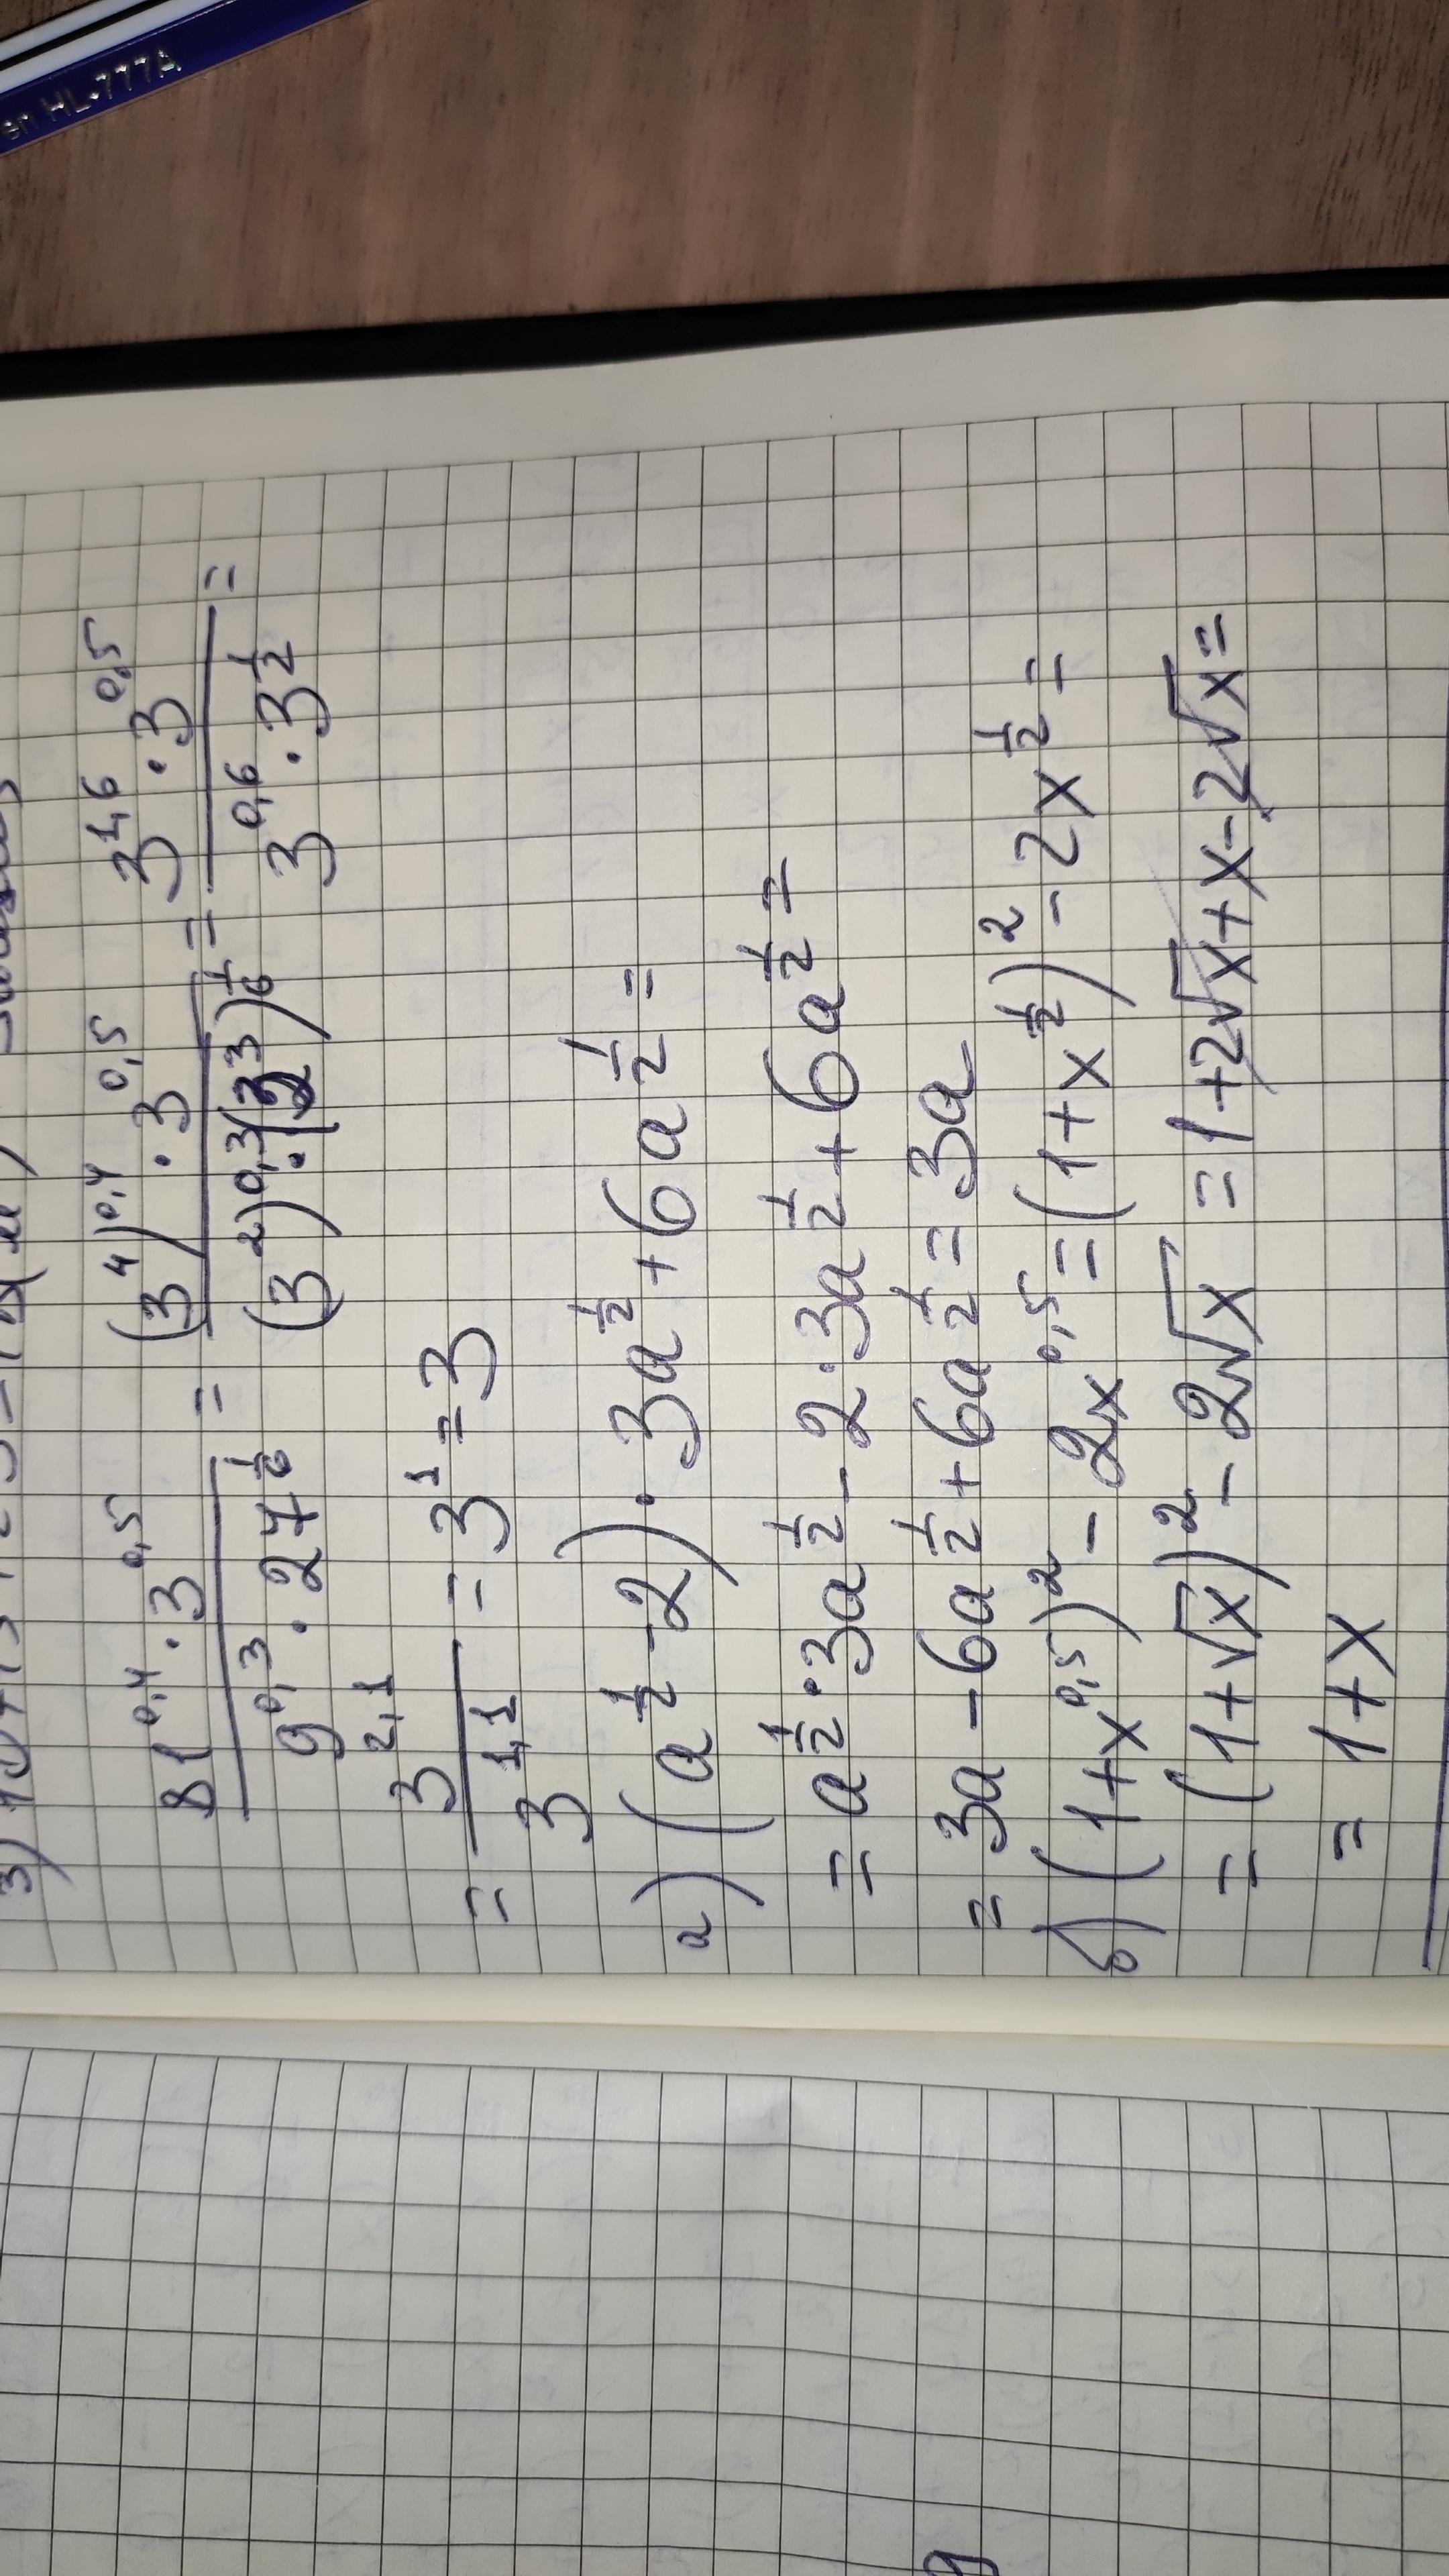 en HL-777A
3)
81^0,4 · 3^0,5 / 9^0,3 · 27^1/6 = (3^4)^0,4 · 3^0,5 / (3^2)^0,3 · (3^3)^1/6 = 3^1,6 · 3^0,5 / 3^0,6 · 3^1/2 =
= 3^2,1 / 3^1,1 = 3^1 = 3
а) (a^1/2 - 2) · 3a^1/2 + 6a^1/2 =
= a^1/2 · 3a^1/2 - 2 · 3a^1/2 + 6a^1/2 =
= 3a - 6a^1/2 + 6a^1/2 = 3a
б) (1+x^0,5)^2 - 2x^0,5 = (1+x^1/2)^2 - 2x^1/2 =
= (1+√x)^2 - 2√x = 1+2√x+x-2√x =
= 1+x